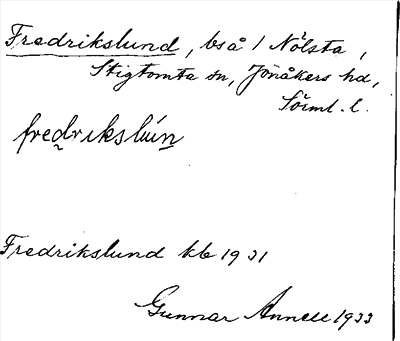 Fredrikslund, bså / Nölsta,
Stigtomta sn, Jönåkers hd,
Sörml. l.
fredrikslún
Fredrikslund kb 1931
Gunnar Annell 1933